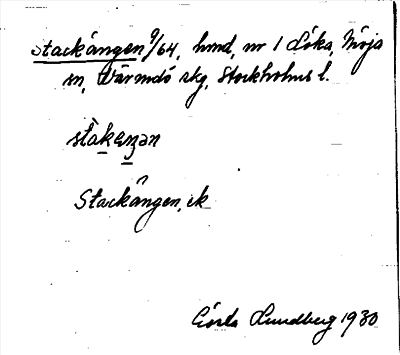 Stackängen 9/64, hmd, nr 1 Löka, Möja
sn, Värmdö skg, Stockholms l.
stàkæŋən
Stackängen, ek
Gösta Lundberg 1930